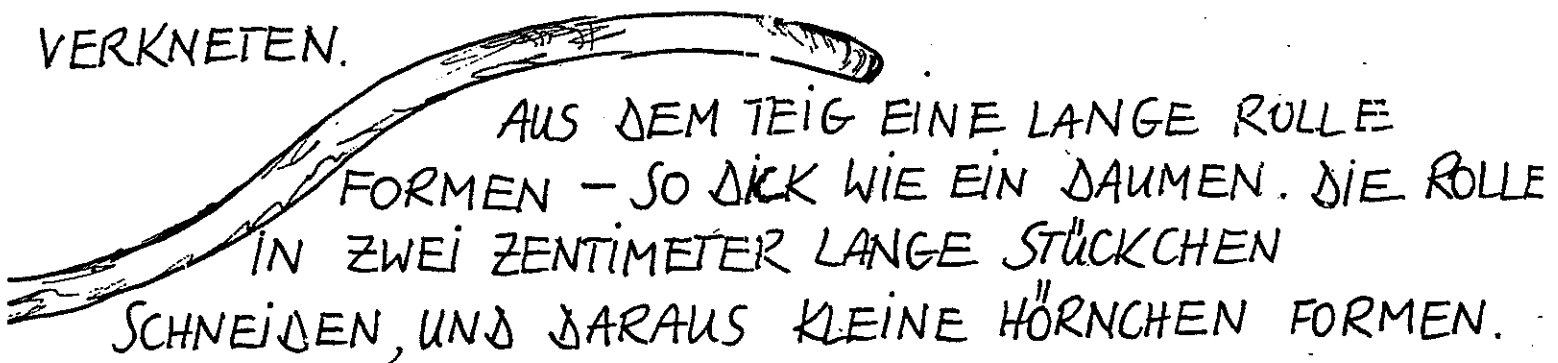 VERKNETEN.
AUS DEM TEIG EINE LANGE ROLLE
FORMEN – SO DICK WIE EIN DAUMEN. DIE ROLLE
IN ZWEI ZENTIMETER LANGE STÜCKCHEN
SCHNEIDEN, UND DARAUS KLEINE HÖRNCHEN FORMEN.